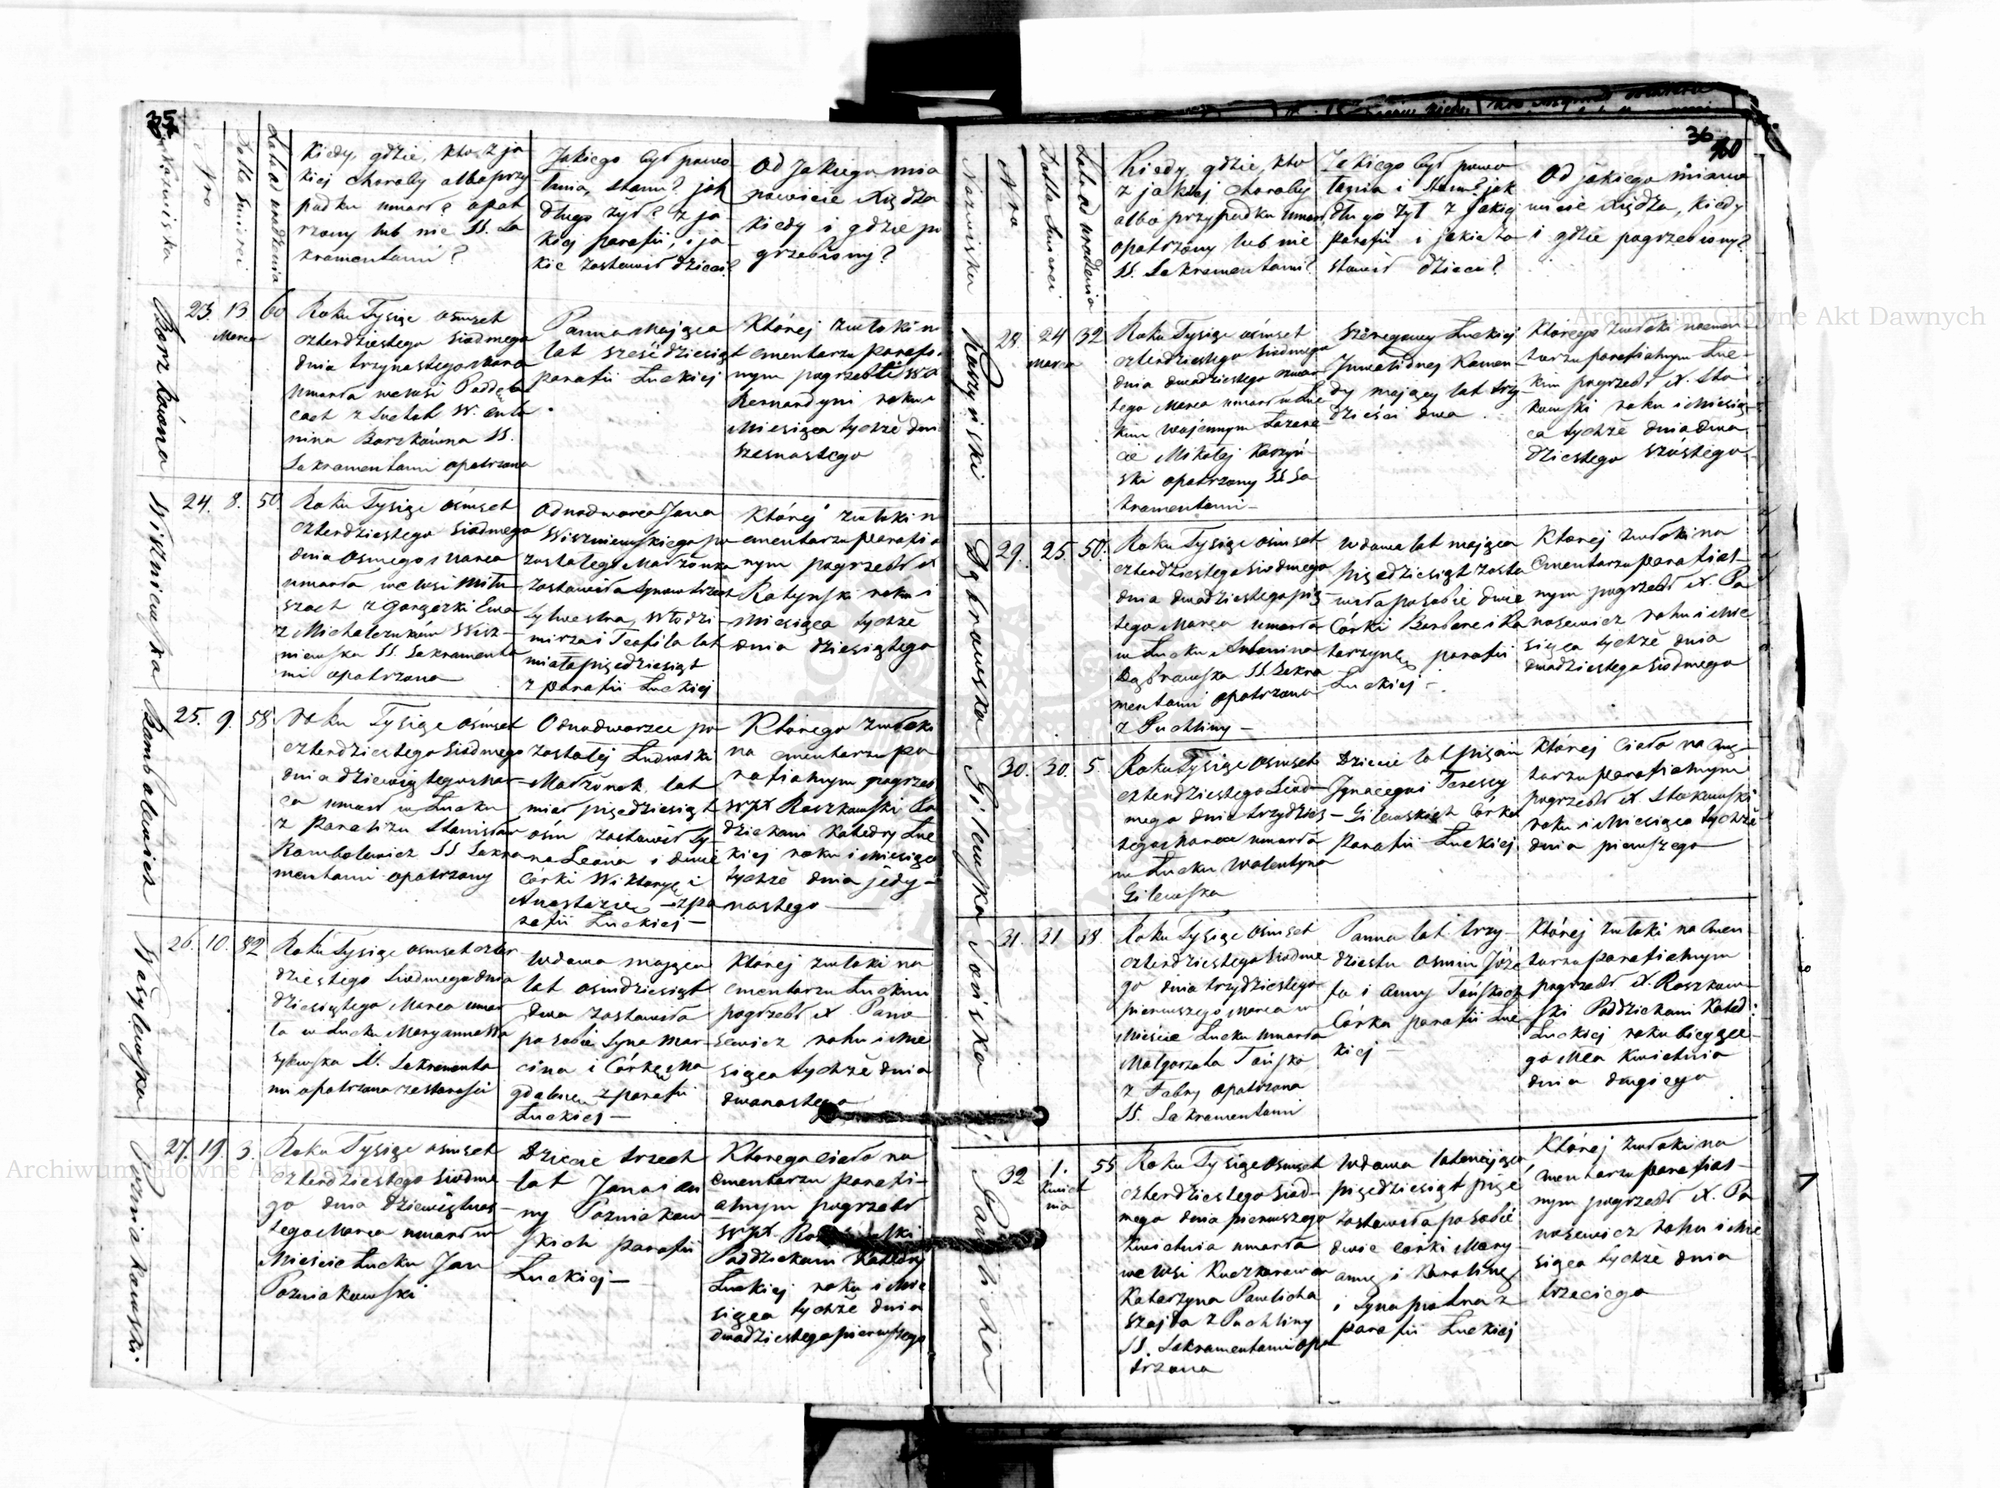 35
Nazwiska
Nro
Datta Smierci
Lata od urodzenia
Kiedy, gdzie, kto z ja
kiej choroby albo przy
padku umarł? opat
rzony lub nie SS. Sa
kramentami?
Jakiego był powo
łania, stanu? jak
długo żył? z ja
kiej parafii, i ja
kie zostawił dzieci?
Od jakiego mia
nowicie Xiędza
kiedy i gdzie po
grzebiony?
Borzkówna
23.
13
Marca
60
Roku Tysiąc ośmset
czterdziestego siódmego
dnia trzynastego Marca
umarła we wsi
z Suchot W. Anto
nina Borzkówna SS.
Sakramentami opatrzona
Panna mająca
lat sześćdziesiąt
parafii Łuckiej
Której zwłoki n
cmentarzu parafi
nym pogrzebli WW
Bernardyni roku i
Miesiąca tychże dnia
szesnastego
Wiszniewska
24.
8.
50
Roku Tysiąc ośmset
czterdziestego siódmego
dnia osmego Marca
umarła we wsi Miłu
szach z Gorączki Ewa
z Michalczuków Wisz-
niewska SS Sakramenta
mi opatrzona
Odnodworca Jana
Wiszniewskiego po
zostałego Małżonka
zostawiła synów trzech
Sylwestra, Włodzi-
mirza i Teofila lat
miała pięćdziesiąt
z parafii Łuckiej
Której zwłoki n
cmentarzu parafia
nym pogrzebł X
Ratyński roku i
Miesiąca tychże
dnia dziesiątego
Bambolewicz
25.
9.
58
Roku Tysiąc ośmset
czterdziestego siódmego
dnia dziewiątego Mar-
ca umarł w Łucku
z Paraliżu Stanisław
Bambolewicz SS Sakra
mentami opatrzony
Odnodworzec po
zostałej Ludwiki
Małżonek lat
miał pięćdziesiąt
ośm zostawił Sy-
na Leona i dwie
Córki Wiktoryę i
Anastazię z pa
rafii Łuckiej
Którego zwłoki
na cmentarzu pa
rafialnym pogrzebł
WJX Roszkowski Po
dziekani Katedry Łuc
kiej roku i Miesiąca
tychże dnia jedy-
nastego
Wasylewska
26.
10.
82
Roku Tysiąc ośmset czter
dziestego siódmego dnia
dziesiątego Marca umar
ła w Łucku Maryanna Wa
sylewska SS. Sakramenta
mi opatrzona ze starości
Wdowa mająca
lat ośmdziesiąt
dwa zostawiła
po sobie Syna Mar-
cina i Córkę Ma
gdalenę z parafii
Łuckiej
Której zwłoki na
cmentarzu Łuckim
pogrzebł X. Pana
sewicz roku i Mie
siąca tychże dnia
dwunastego
Poźniakowski.
27.
19.
3.
Roku Tysiąc ośmset
czterdziestego siódme
go dnia dziewiętnas-
tego Marca umarł w
Mieście Łucku Jan
Poźniakowski
Dziecie trzech
lat Jana i An
ny Poźniakow
skich parafii
Łuckiej
Którego ciało na
cmentarzu parafi-
alnym pogrzebł
WJX. Roszkowski
Poddziekani Katedry
Łuckiej roku i Mie
siąca tychże dnia
dwudziestego pierwszego
36
Nazwiska
Nro
Datta Smierci
Lata od urodzenia
Kiedy, gdzie, kto
z jakiej choroby
albo przypadku umarł
opatrzony lub nie
SS. Sakramentami?
Jakiego był powo
łania i stanu? jak
długo żył z jakiej
Parafii i jakie zo
stawił dzieci?
Od jakiego miano
wicie Xiędza, kiedy
i gdzie pogrzebiony?
Kaszyński
28.
24
Marca
32
Roku Tysiąc ośmset
czterdziestego siódmego
dnia dwudziestego czwar
tego Marca umarł w Łuc
kim wojennym Lazare
cie Mikołaj Kaszyń
ski opatrzony SS Sa
kramentami
Szeregowy Łuckiej
Inwalidnej Koman-
dy mający lat trzy
dzieści dwa
Którego zwłoki na cmen
tarzu parafialnym Łuc-
kim pogrzebł X. Sta
kowski roku i Miesią-
ca tychże dnia dwu
dziestego szóstego
Dąbrowska
29.
25.
50.
Roku Tysiąc ośmset
czterdziestego siódmego
dnia dwudziestego pią-
tego Marca umarła
w Łucku Antonina
Dąbrowska SS Sakra
mentami opatrzona
z Puchliny
Wdowa lat mająca
pięćdziesiąt zosta
wiła po sobie dwie
Córki Barbarę i Ka
tarzynę parafii
Łuckiej
Której zwłoki na
Cmentarzu parafial-
nym pogrzebł X. Pa
nasewicz roku i Mie
siąca tychże dnia
dwudziestego siódmego
Gilewska
30.
30.
5.
Roku Tysiąc ośmset
czterdziestego siód-
mego dnia trzydzies-
tego Marca umarła
w Łucku Walentyna
Gilewska
Dziecie lat pięciu
Ignacego i Teressy
Gilewskich Córka
Parafii Łuckiej
Której ciało na Cmę-
tarzu parafialnym
pogrzebł X. Stakowski
roku i Miesiąca tychże
dnia pierwszego
Tońska
31.
31
38.
Roku Tysiąc ośmset
czterdziestego siódme
go dnia trzydziestego
pierwszego Marca w
Mieście Łucku umarła
Małgorzata Tońska
z Febry opatrzona
SS. Sakramentami
Panna lat trzy-
dzieści ośmiu Józe
fa i Anny Tońskich
Córka parafii Łuc
kiej
Której zwłoki na Cmen
tarzu parafialnym
pogrzebł X. Roszkow
ski Poddziekani Kated:
Łuckiej roku bieżące
go Mca Kwietnia
dnia drugiego
Pawlicha
32
1.
Kwiet
nia
55
Roku Tysiąc ośmset
czterdziestego siód-
mego dnia pierwszego
Kwietnia umarła
we wsi
Katarzyna Pawlicha
z Puchliny
SS. Sakramentami opa
trzona
Wdowa lat mająca
pięćdziesiąt pięć
zostawiła po sobie
dwie córki Mary-
annę i Karolinę
i Syna Piotra z
parafii Łuckiej
Której zwłoki na
cmentarzu parafial-
nym pogrzebł X. Pa
nasewicz roku i Mie
siąca tychże dnia
trzeciego
Archiwum Główne Akt Dawnych
Archiwum Główne Akt Dawnych